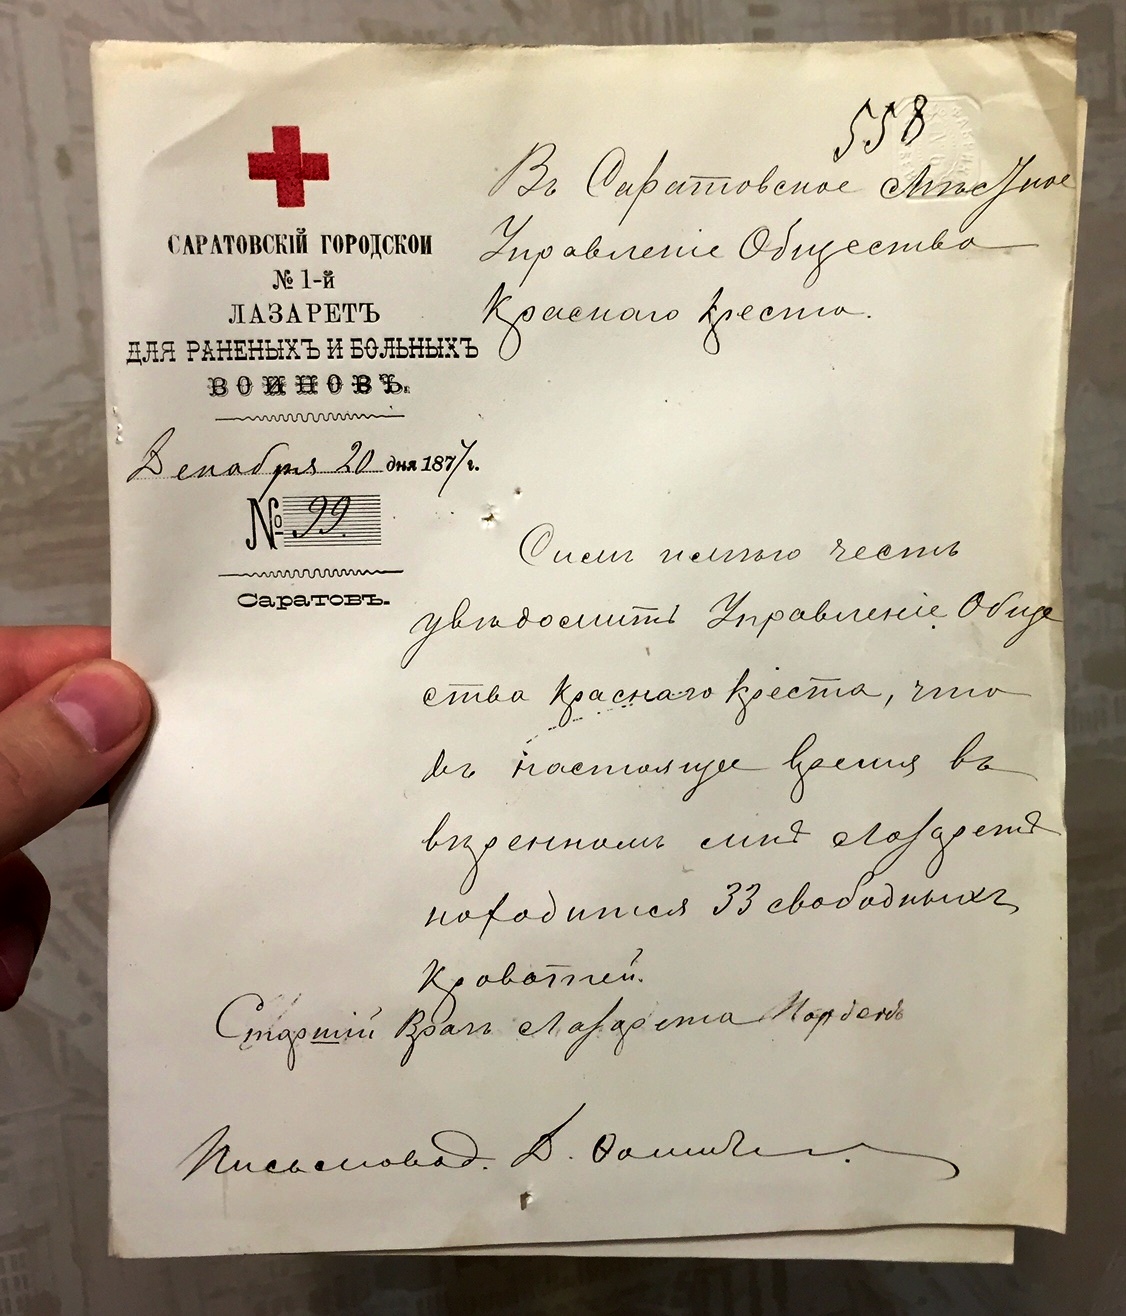 САРАТОВСКІЙ ГОРОДСКОЙ
№ 1-й
ЛАЗАРЕТЪ
ДЛЯ РАНЕНЫХЪ И БОЛЬНЫХЪ
ВОИНОВЪ.
Декабря 20 дня 1877 г.
№ 99.
Саратовъ.
558
Въ Саратовское Мѣстное
Управленіе Общества
Краснаго Креста.
Симъ имѣю честь
увѣдомить Управленіе Обще
ства Краснаго Креста, что
въ настоящее время въ
ввѣренномъ мнѣ Лазаретѣ
находится 33 свободныхъ
кроватей.
Старшій Врачъ Лазарета
Письмовод. Д.